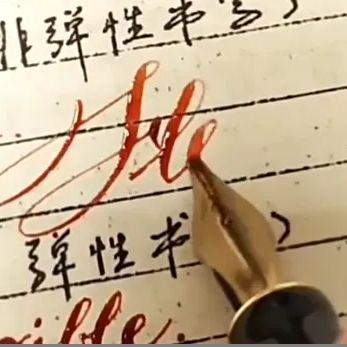 非弹性书写)
Fle
弹性书)
xible.